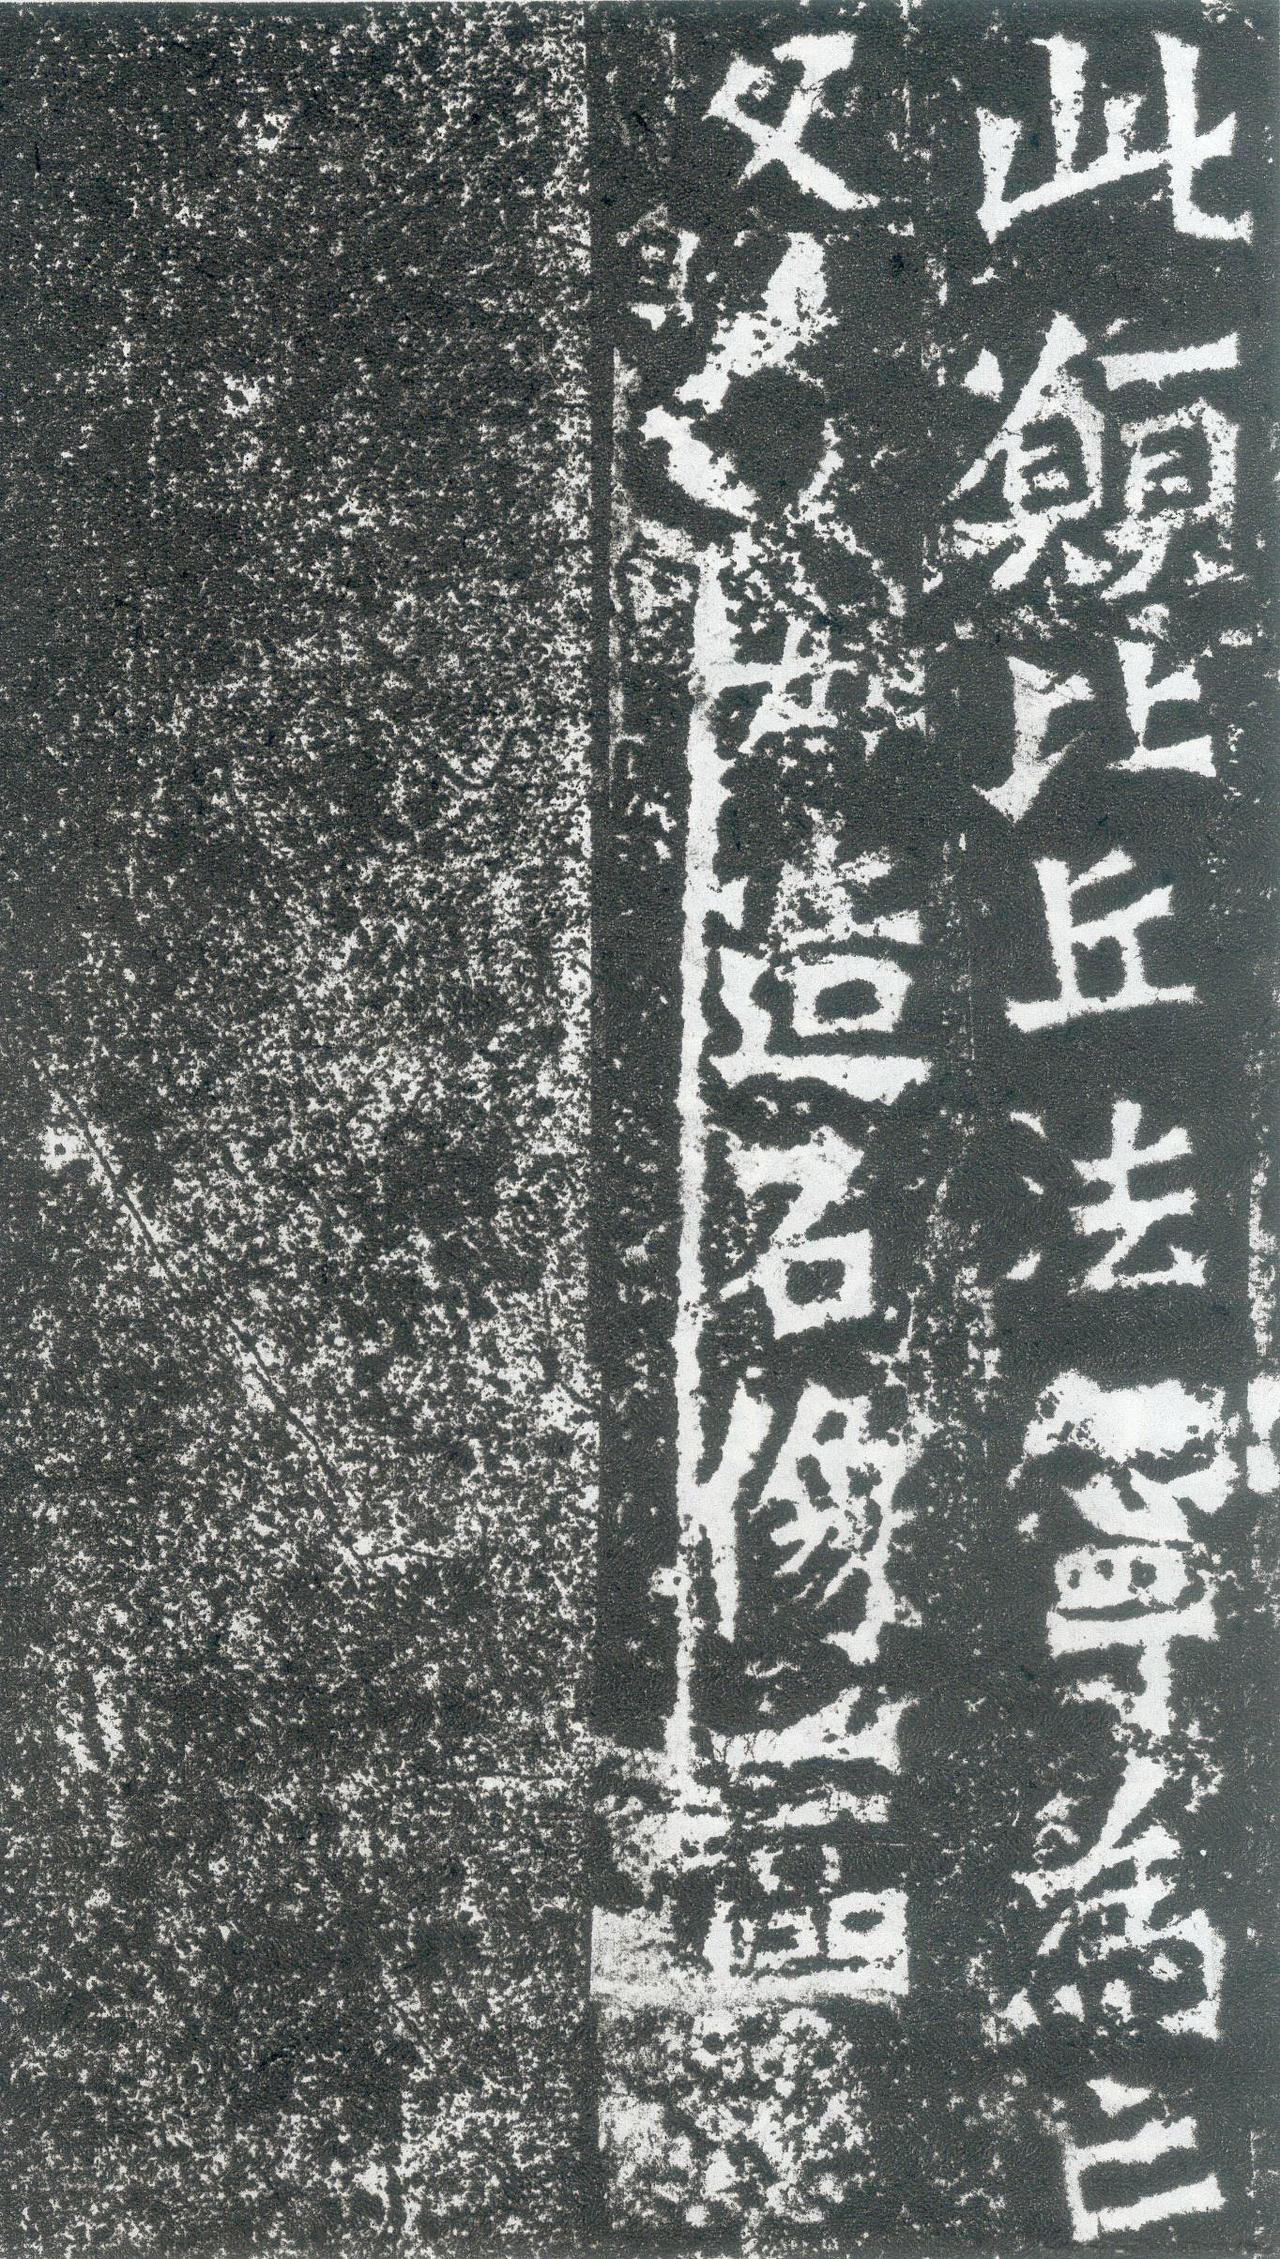 此願比丘法為亡
父造石像一區